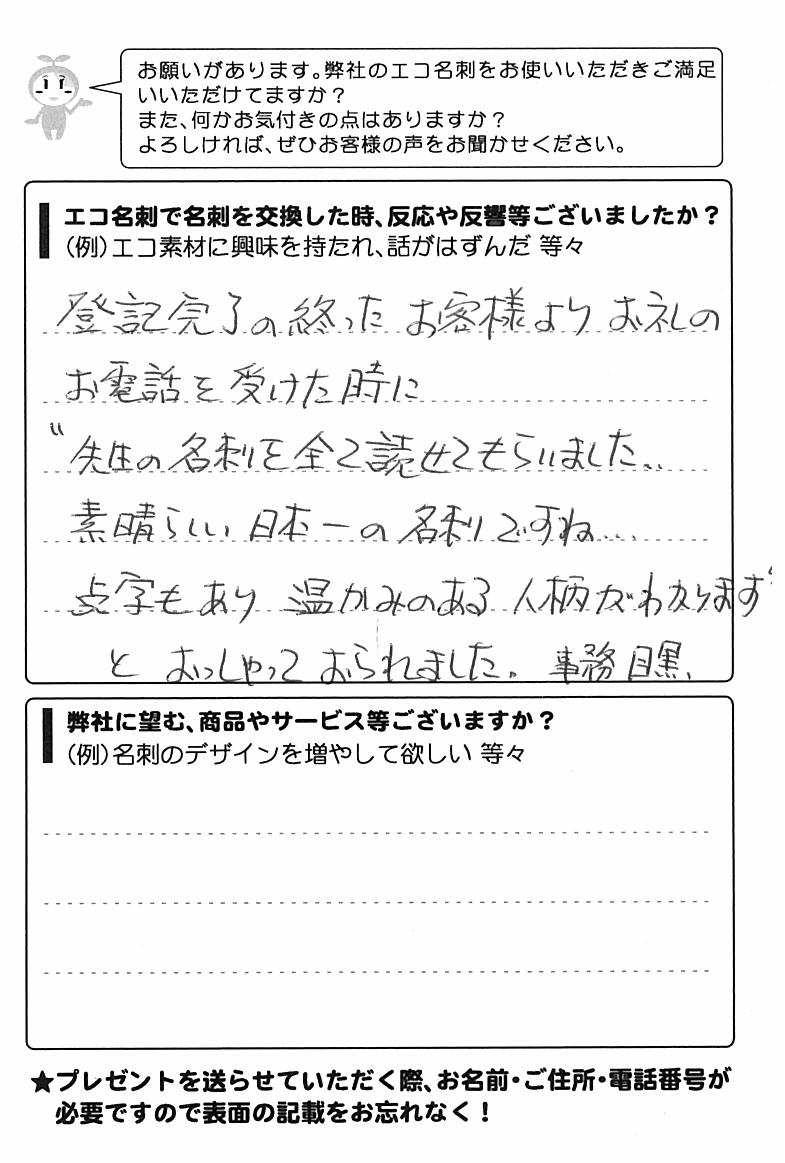 お願いがあります。弊社のエコ名刺をお使いいただきご満足
いいただけてますか？
また、何かお気付きの点はありますか？
よろしければ、ぜひお客様の声をお聞かせください。
エコ名刺で名刺を交換した時、反応や反響等ございましたか？
（例）エコ素材に興味を持たれ、話がはずんだ 等々
登記完了の終ったお客様よりお礼の
お電話を受けた時に
〝先生の名刺を全て読ませてもらいました..
素晴らしい日本一の名刺ですね...
点字もあり温かみのある人柄がわかります〟
とおっしゃっておられました。事務 目黒、
弊社に望む、商品やサービス等ございますか？
（例）名刺のデザインを増やして欲しい 等々
★プレゼントを送らせていただく際、お名前・ご住所・電話番号が
必要ですので表面の記載をお忘れなく！